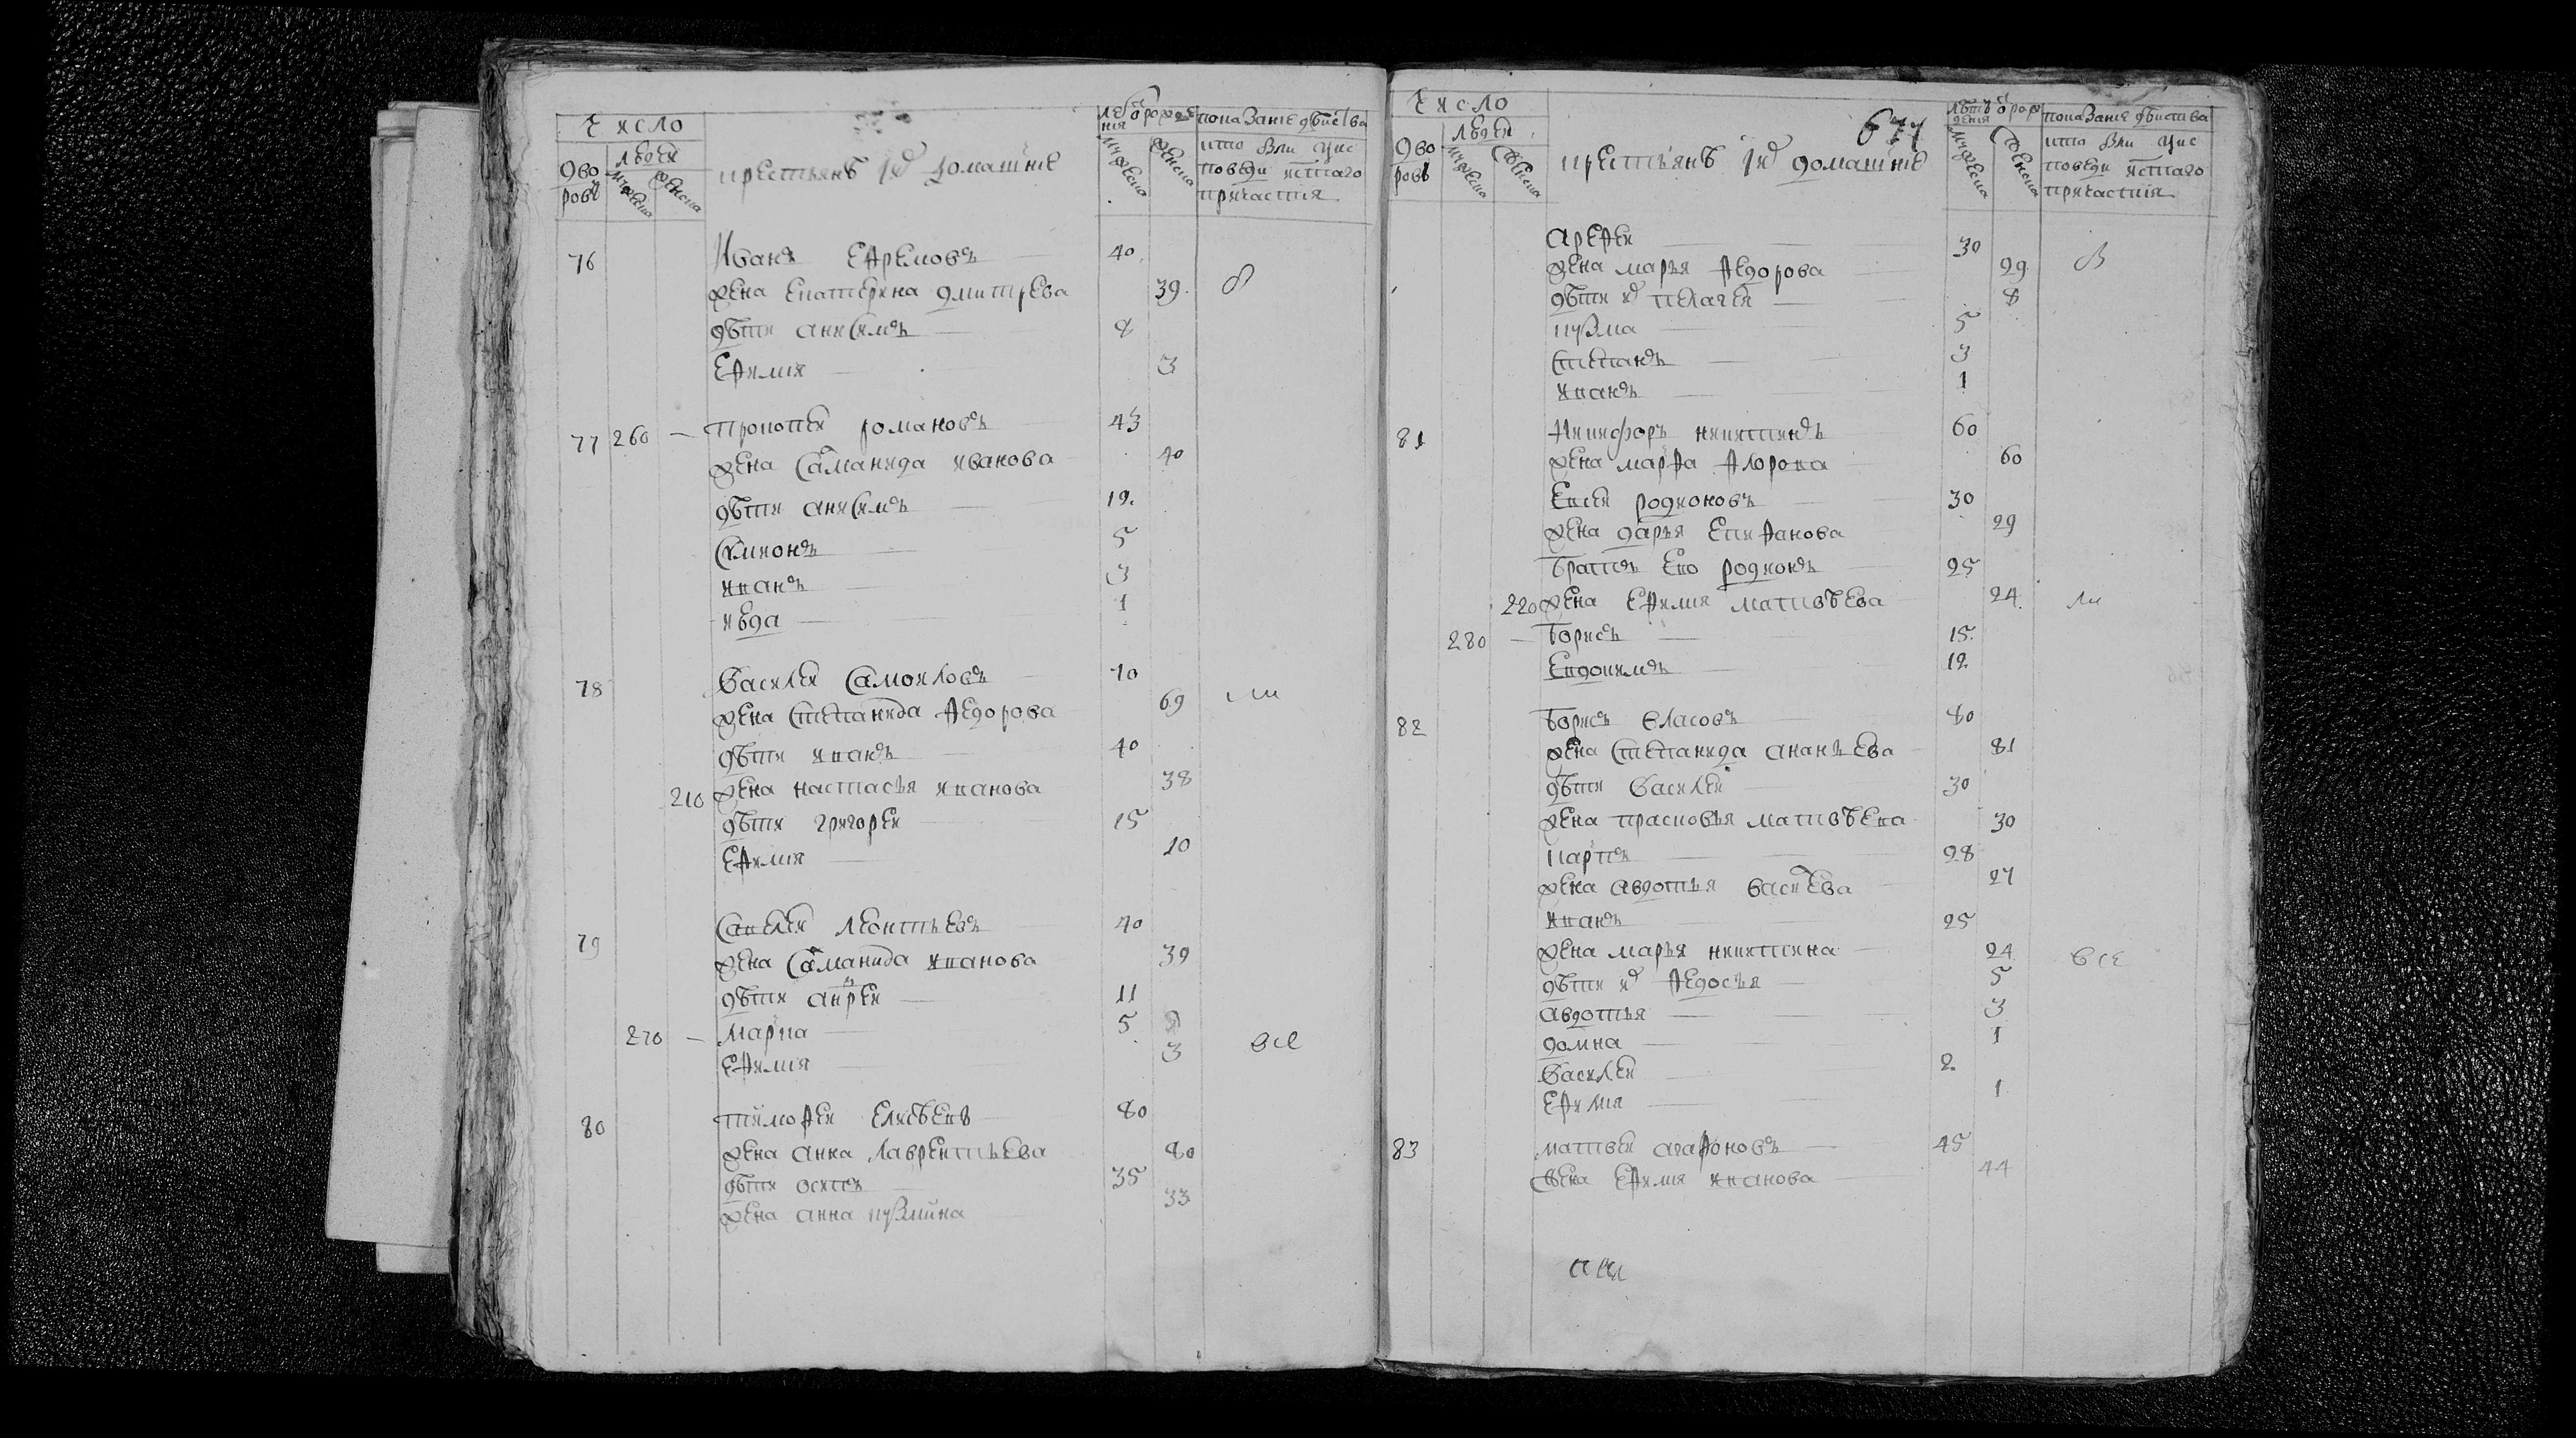 Число
Дворовъ
Людей
мужеска
женска
крестьянъ ихъ домашние
Летъ от рождения
мужеска
женска
показание действа
кто былъ у ис
поведи и стаго
причастия
76 Иванъ Ефремовъ 40
жена Екатерина Дмитрева 39
дѣти Анисимъ 8
Ефимия 3
77 260 Прокопей Романовъ 43
жена Саманида Иванова 40
дѣти Анисимъ 12
Симионъ 5
Иванъ 3
Иѣда 1
78 Василей Самоиловъ 70
жена Степанида Федорова 69
дѣти Иванъ 40
210 жена Настасья Иванова 38
дѣти Григорей 15
Ефимия 10
79 Савелей Леонтьевъ 40
жена Саманида Иванова 39
дѣти Андрей 11
270 Марка 5
Ефимия 3 все
80 Тимофей Елисѣевъ 80
жена Анна Лаврентьева 80
дѣти Осипъ 35
жена Анна Кузмина 33
677
Число
Дворовъ
Людей
мужеска
женска
крестьянъ ихъ домашние
Летъ от рождения
мужеска
женска
показание действа
кто былъ у ис
поведи и стаго
причастия
Арефей 30
жена Марья Федорова 29
дѣти ихъ Пелагея 8
Кузма 5
Степанъ 3
Иванъ 1
81 Никифоръ Никитинъ 60
жена Марфа Флорова 60
Евсей Родионовъ 30
жена Дарья Епифанова 29
братъ Ево Родионъ 25
220 жена Ефимия Матвѣева 24 ли
280 Борисъ 15
Евдокимъ 12
82 Борисъ Власовъ 80
жена Степанида Ананьева 81
дѣти Василей 30
жена Прасковья Матвѣева 30
Карпъ 28
жена Авдотья Васиева 27
Иванъ 25
жена Марья Никитина 24 все
дѣти ихъ Федосья 5
Авдотья 3
Домна 1
Василей 2
Ефимия 1
83 Матвей Агафоновъ 45
жена Ефимия Иванова 44